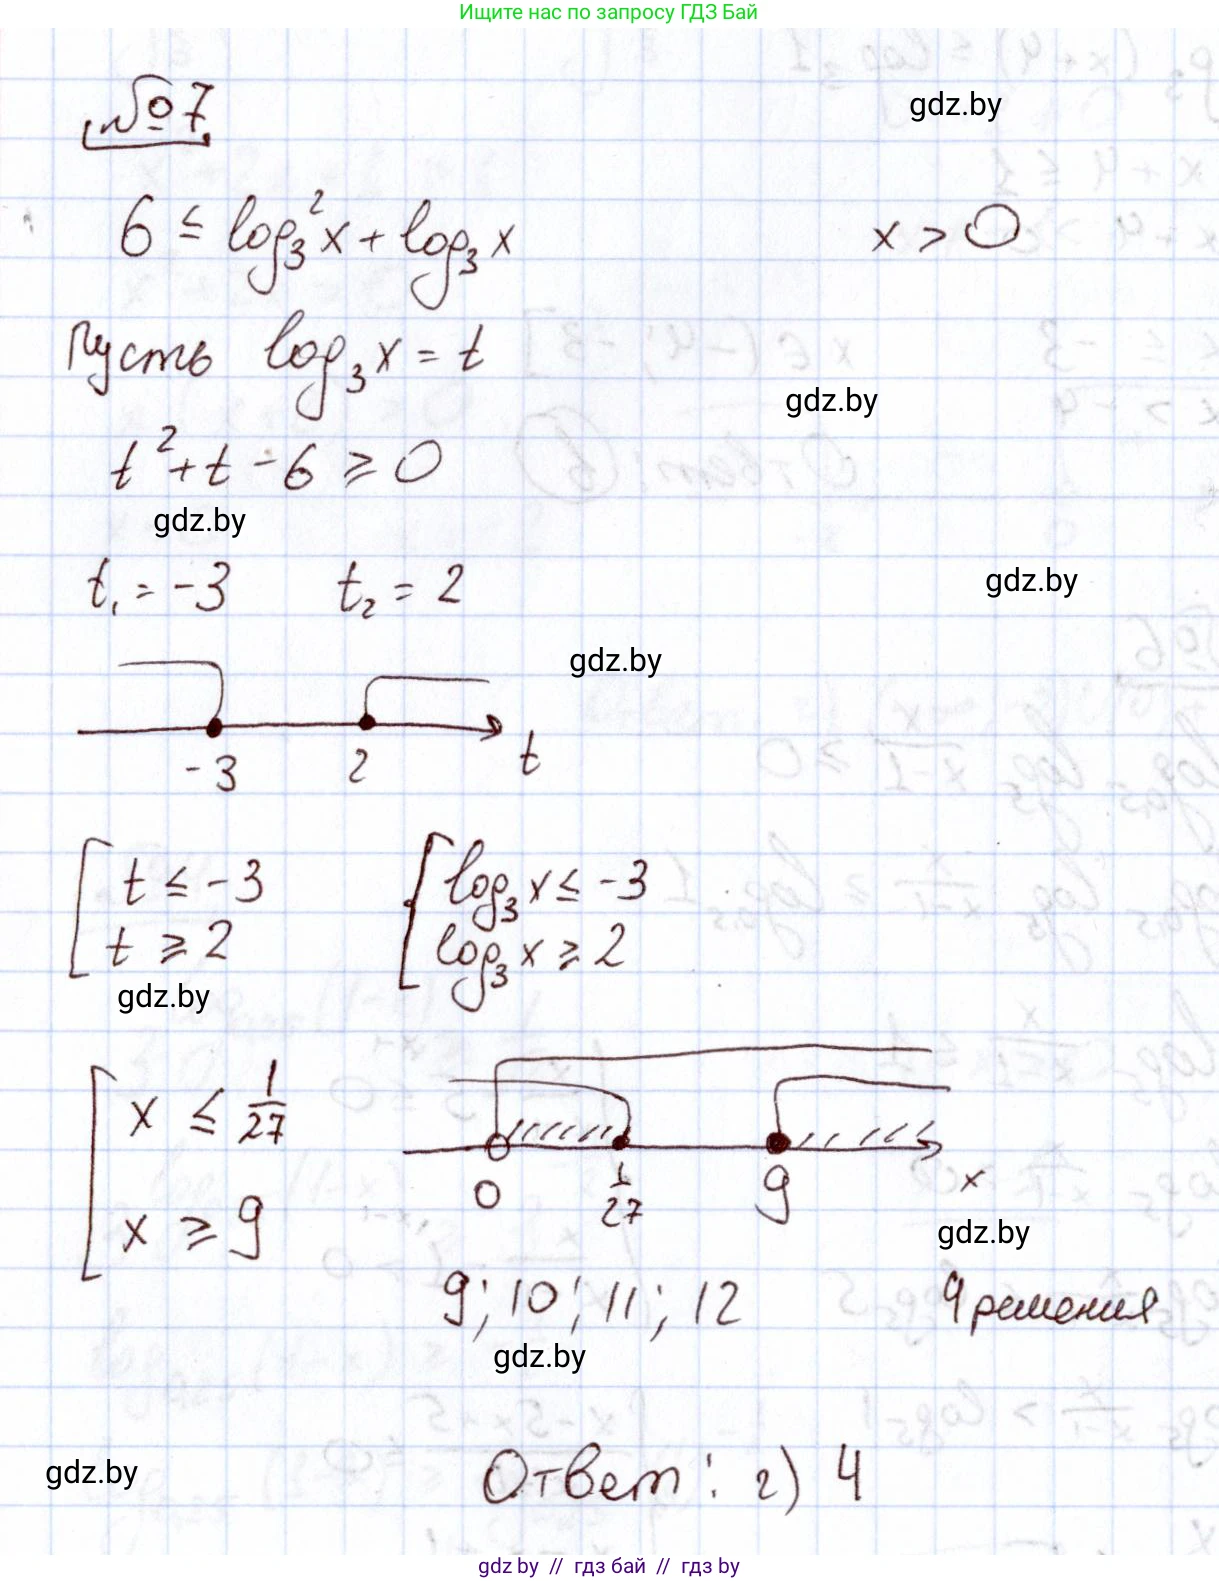 Ищите нас по запросу ГДЗ Бай
№7
gdz.by
6 ≤ log₃²x + log₃x   x > 0
Пусть log₃x = t
gdz.by
t² + t - 6 ≥ 0
gdz.by
t₁ = -3   t₂ = 2
gdz.by
gdz.by
-3   2   t
t ≤ -3   log₃x ≤ -3
t ≥ 2   log₃x ≥ 2
gdz.by
x ≤ 1/27
0   1/27   9   x
x ≥ 9
gdz.by
9; 10; 11; 12   4 решения
gdz.by
gdz.by
Ответ: г) 4
gdz.by // гдз бай // гдз by